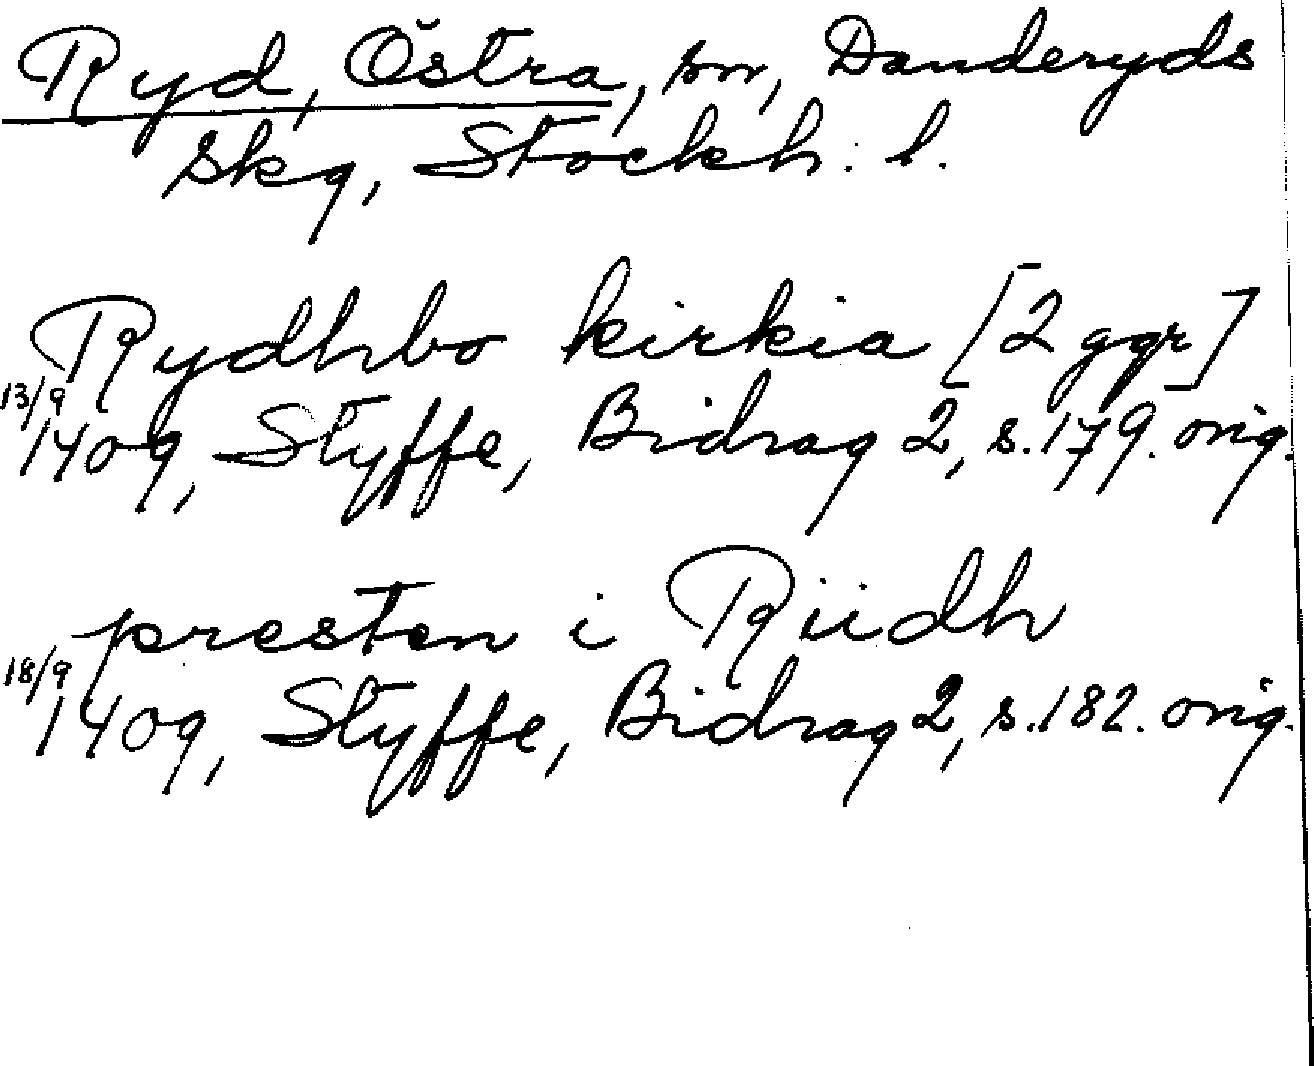 Ryd, Östra, sn, Danderyds
skg, Stockh. l.
Rydhbo kirkia [2 ggr]
13/9 1409, Styffe, Bidrag 2, s. 179. orig.
presten i Riidh
18/9 1409, Styffe, Bidrag 2, s. 182. orig.